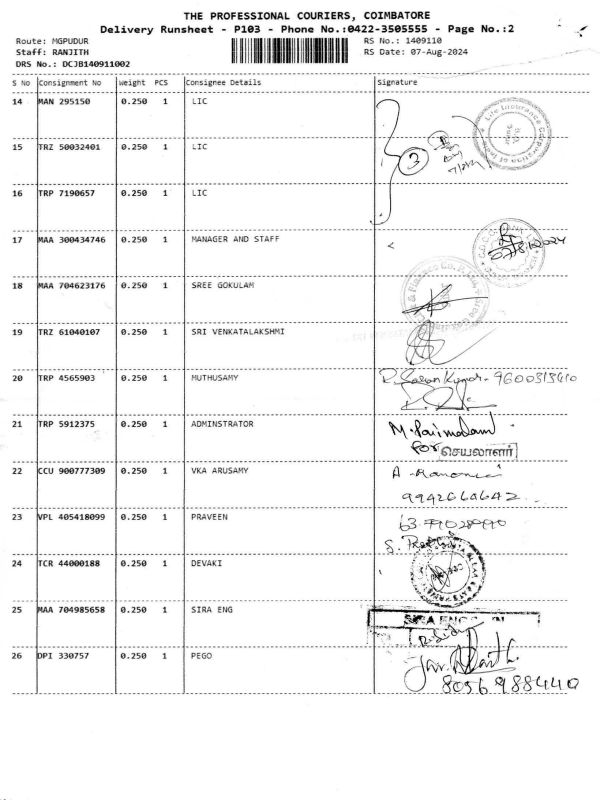 THE PROFESSIONAL COURIERS, COIMBATORE
Delivery Runsheet - P103 - Phone No.:0422-3505555 - Page No.:2
Route: MGPUDUR
RS No.: 1409110
Staff: RANJITH
RS Date: 07-Aug-2024
DRS No.: DCJB140911002
S No Consignment No Weight PCS Consignee Details Signature
14 MAN 295150 0.250 1 LIC
15 TRZ 50032401 0.250 1 LIC
3
Life Insurance Corporation of India
16 TRP 7190657 0.250 1 LIC
17 MAA 300434746 0.250 1 MANAGER AND STAFF
18 MAA 704623176 0.250 1 SREE GOKULAM
19 TRZ 61040107 0.250 1 SRI VENKATALAKSHMI
20 TRP 4565903 0.250 1 MUTHUSAMY
21 TRP 5912375 0.250 1 ADMINSTRATOR
For செயலாளர்
22 CCU 900777309 0.250 1 VKA ARUSAMY
23 VPL 405418099 0.250 1 PRAVEEN
24 TCR 44000188 0.250 1 DEVAKI
25 MAA 704985658 0.250 1 SIRA ENG
26 DPI 330757 0.250 1 PEGO